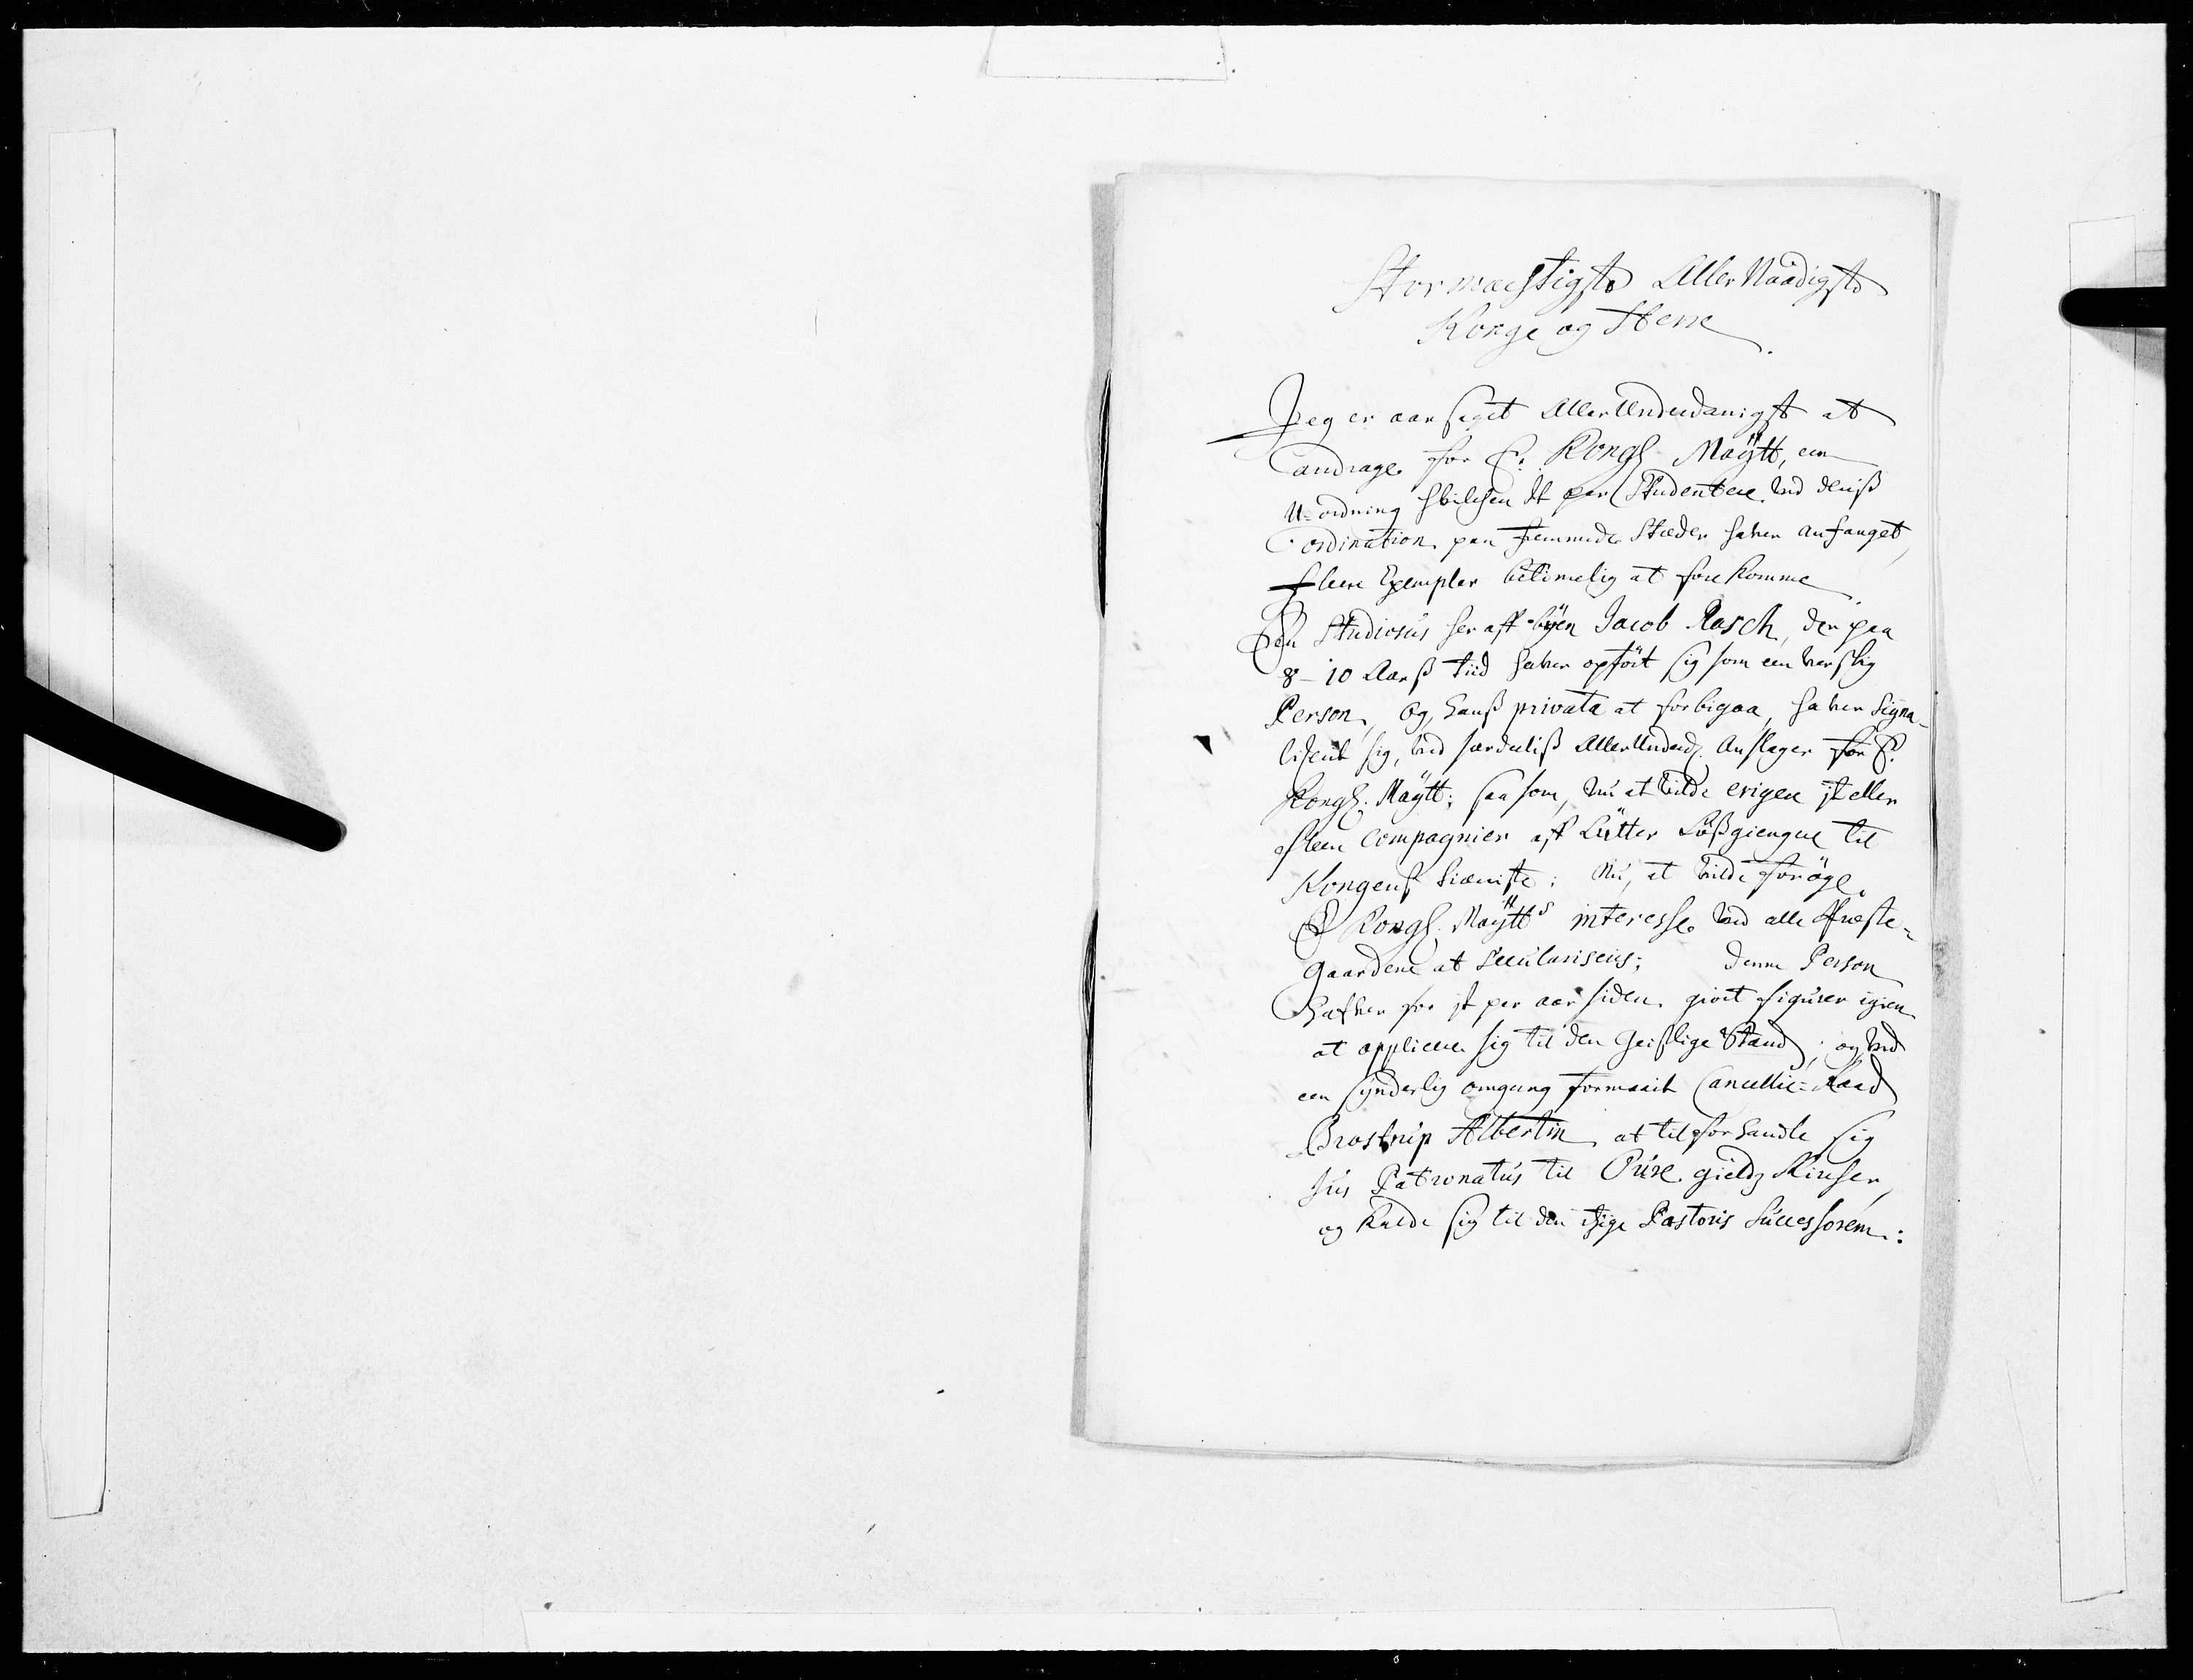 Stormægtigste Aller Naadigste
Konge og Herre
Jeg er aarsaget Aller Underdanigst at
andrage for E. Kongl. Maÿtt, een
U-ordning hvilchen It par Studentere ved deriß
ordination paa fremmede Stæder haver anfanget,
fleere Exempler betimelig at forekomme
En Studiosus her aff byen Jacob Rasch, der paa
8-10 Aarß tiid haver opført sig som een verslig
Person, og, hanß privata at forbigaa, haver Signa-
liserit sig, ved særdeeliß Aller Underd. Anslager for E.
Kongl. Maÿtt; saa som, nu at vilde erigere it eller
fleere Compagnier aff Lutter Løßgiengere til
Kongens tieniste; Nu, at vilde forøge
E Kongl. Maÿtts interesse ved alle Præste-
gaardene at seculariseris; denne Person
Hafver for it par aar siden giort figurer igien
at applicere sig til den Geistlige Stand, og ved
een synderlig omgang formaait Cancellie-Raad
Brostrup Albertin at tilforhandle sig
Jus Patronatus til gieldz Kircher,
og kalde sig til den itzige Pastoris Successorem: